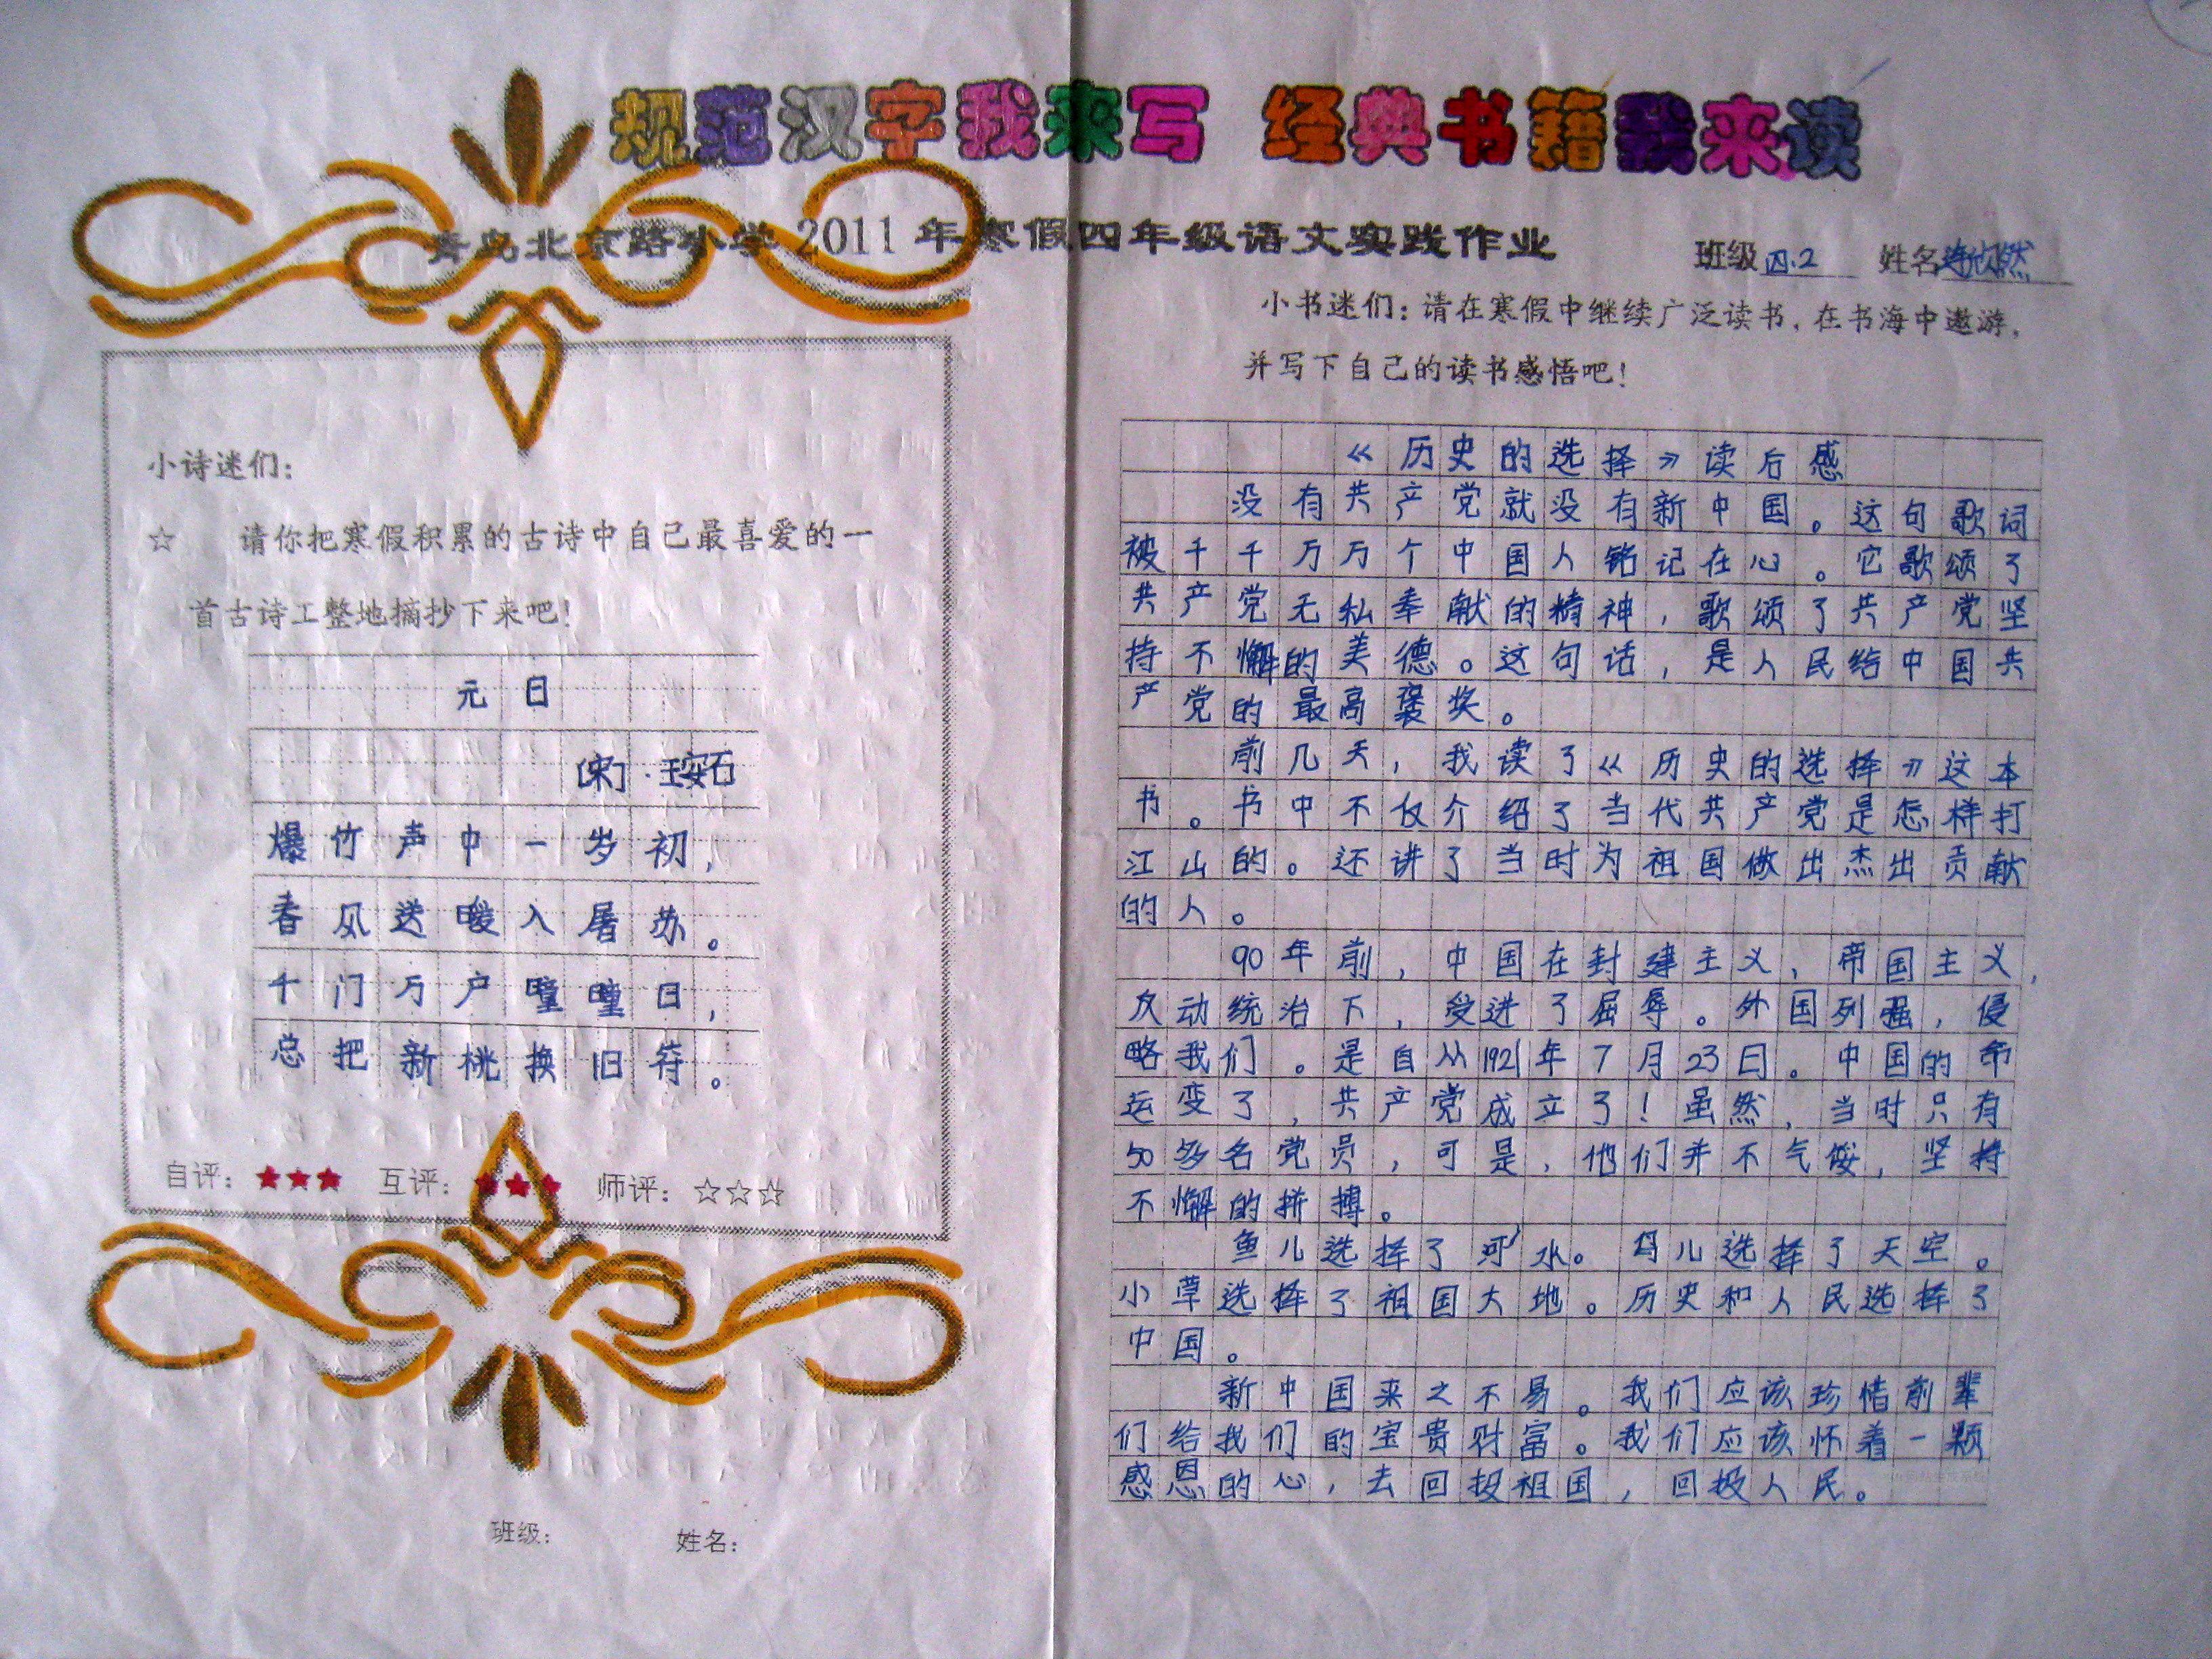 规范汉字我来写 经典书籍我来读
青岛北京路小学 2011 年寒假四年级语文实践作业
班级四.2 姓名欣然
小诗迷们：
☆ 请你把寒假积累的古诗中自己最喜爱的一
首古诗工整地摘抄下来吧！
元日
[宋]·王安石
爆竹声中一岁初，
春风送暖入屠苏。
千门万户曈曈日，
总把新桃换旧符。
自评：★★★ 互评：★★★ 师评：☆☆☆
班级： 姓名：
小书迷们：请在寒假中继续广泛读书，在书海中遨游，
并写下自己的读书感悟吧！
《历史的选择》读后感
没有共产党就没有新中国。这句歌词
被千千万万个中国人铭记在心。它歌颂了
共产党无私奉献的精神，歌颂了共产党坚
持不懈的美德。这句话，是人民给中国共
产党的最高褒奖。
前几天，我读了《历史的选择》这本
书。书中不仅介绍了当代共产党是怎样打
江山的。还讲了当时为祖国做出杰出贡献
的人。
90年前，中国在封建主义、帝国主义，
反动统治下，受进了屈辱。外国列强，侵
略我们。是自从1921年7月23日。中国的命
运变了，共产党成立了！虽然，当时只有
50多名党员，可是，他们并不气馁，坚持
不懈的拼搏。
鱼儿选择了河水。鸟儿选择了天空。
小草选择了祖国大地。历史和人民选择了
中国。
新中国来之不易。我们应该珍惜前辈
们给我们的宝贵财富。我们应该怀着一颗
感恩的心，去回报祖国，回报人民。